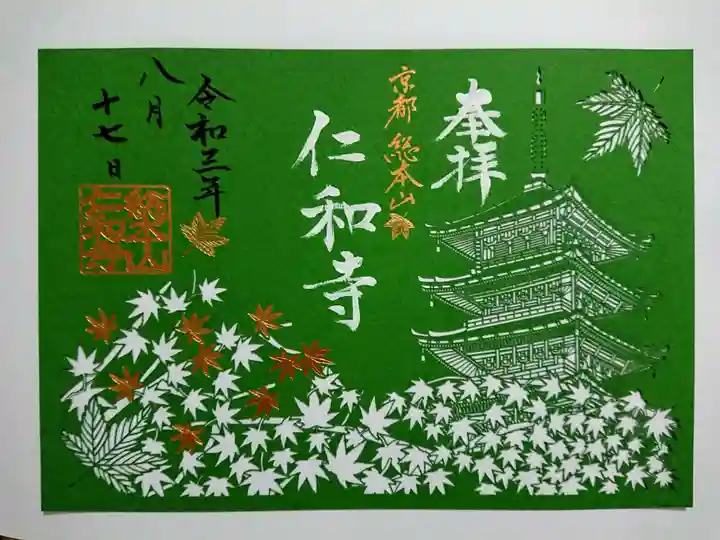 奉拝
京都 総本山
仁和寺
令和三年
八月
十七日
総本山
仁和寺